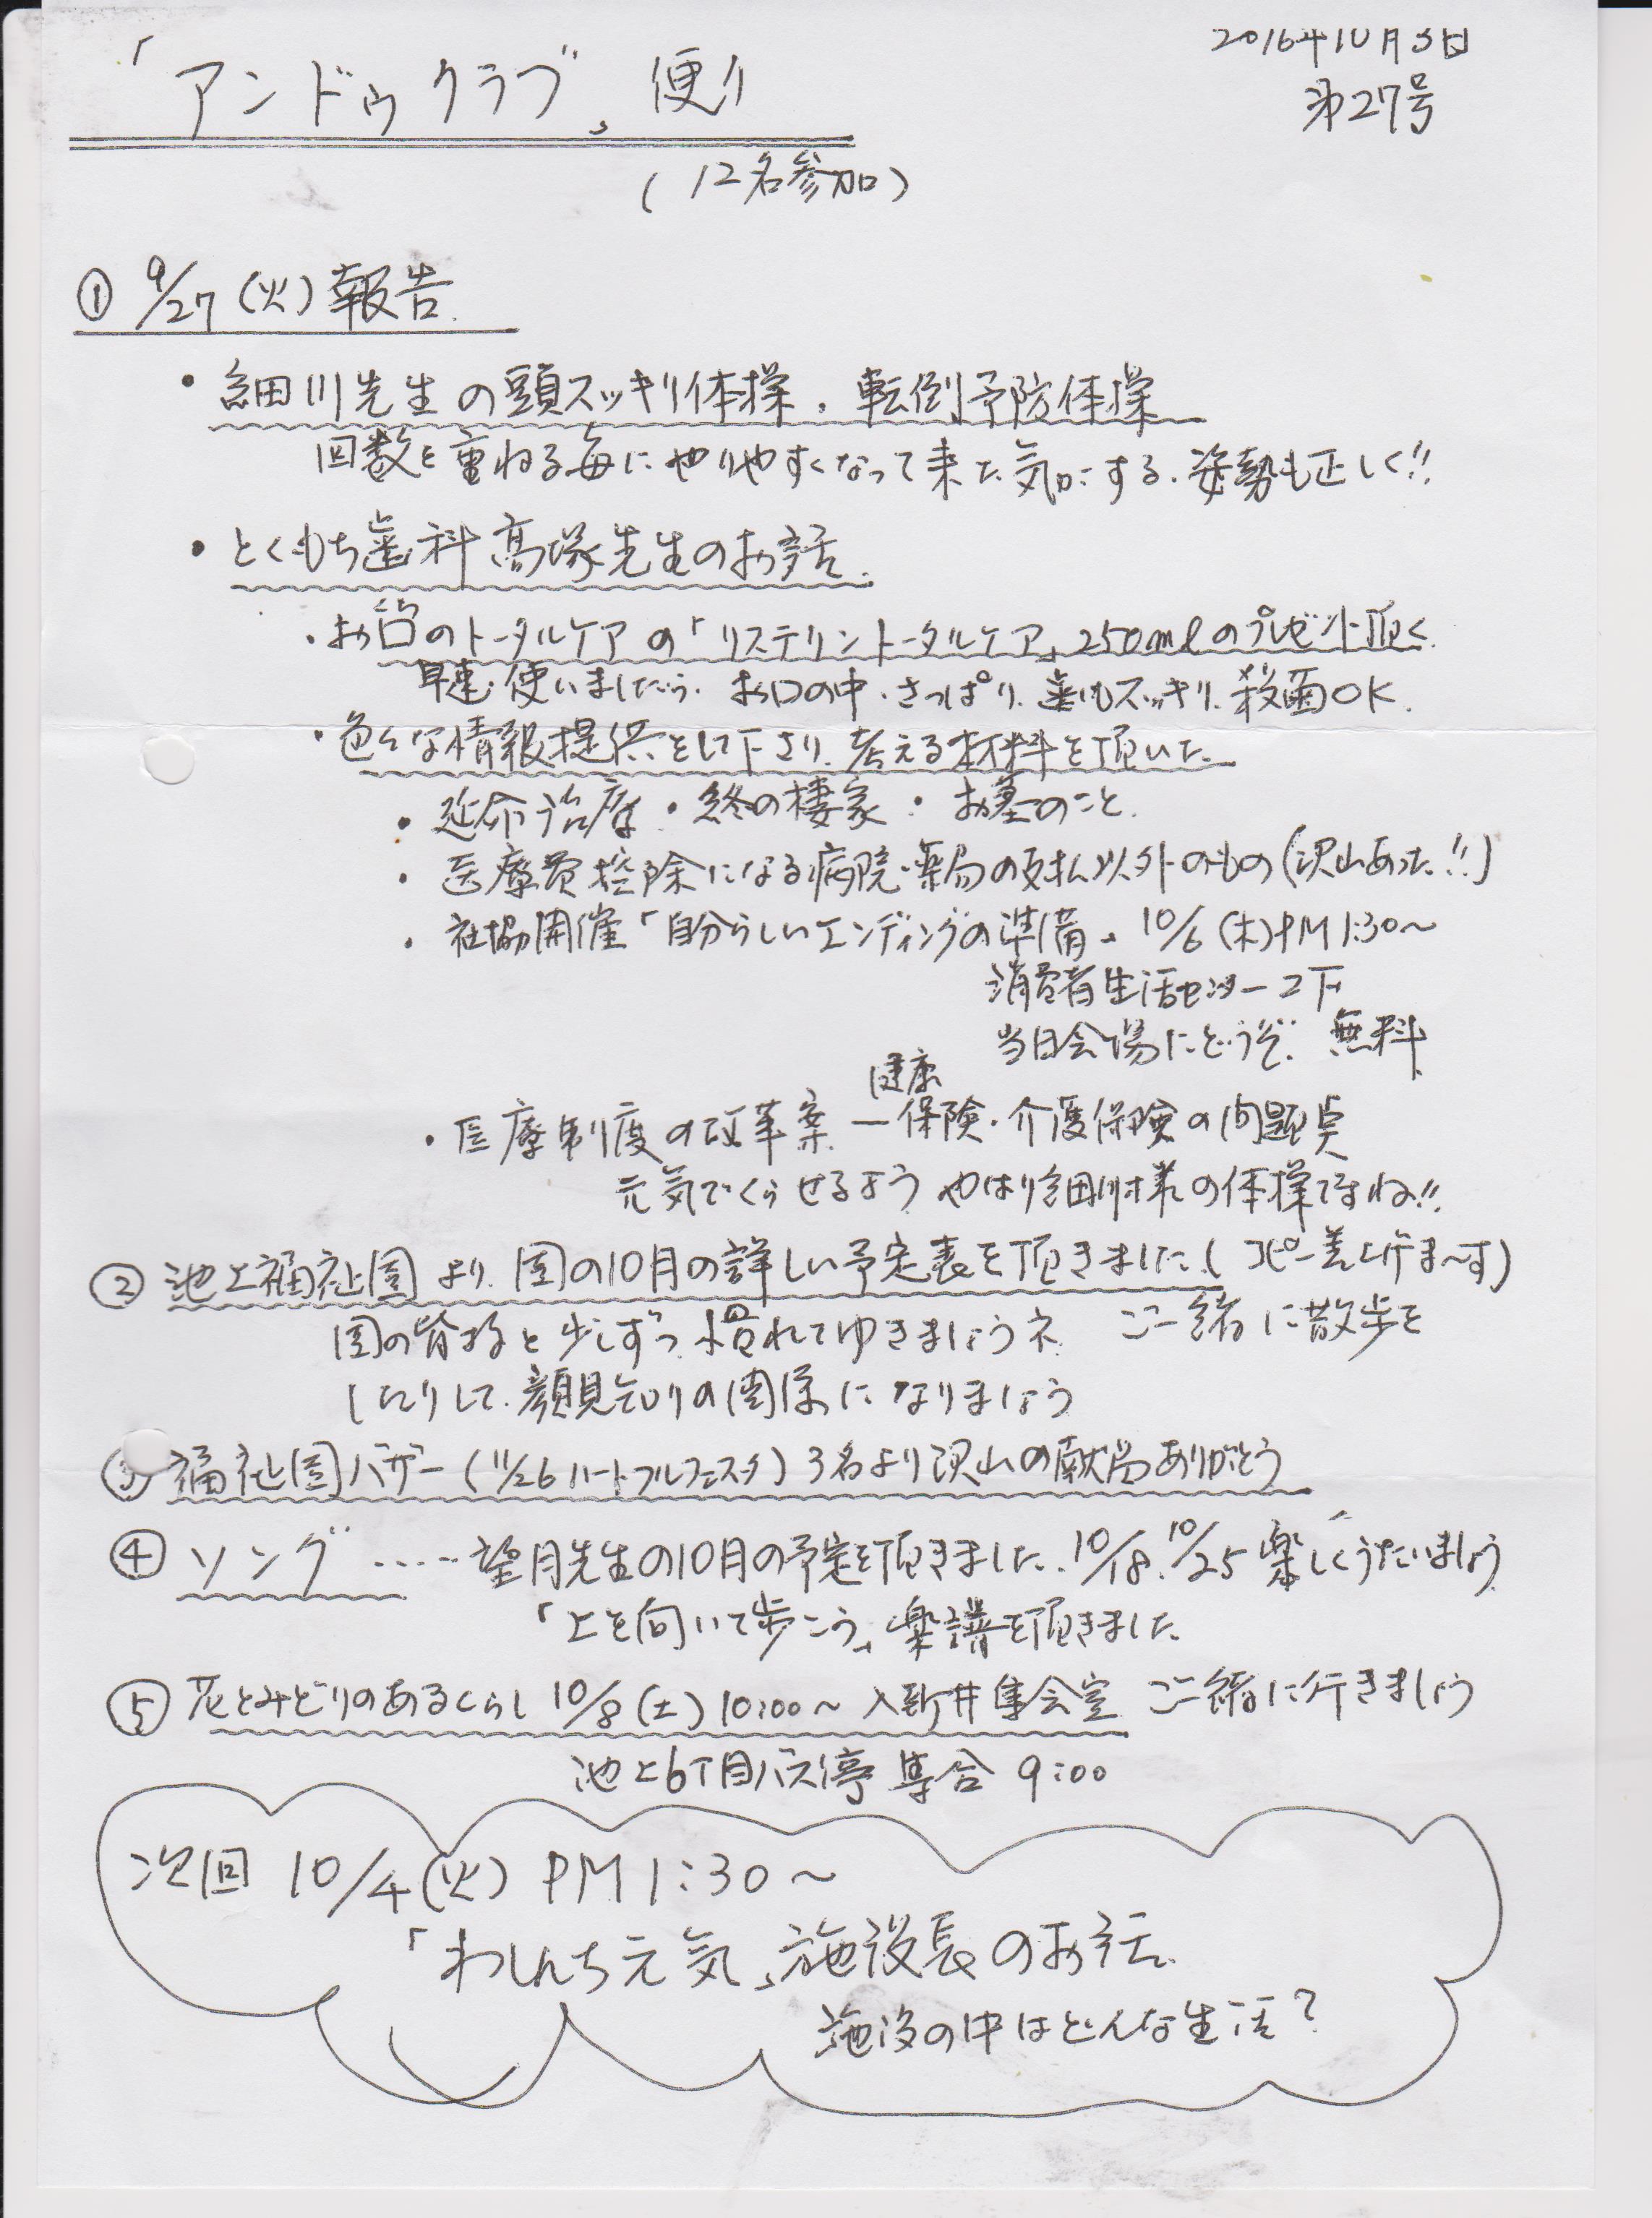 2016年10月3日
「アンドゥクラブ」便り
第27号
(12名参加)
① 9/27(火)報告.
・細川先生の頭スッキリ体操、転倒予防体操
回数を重ねる毎にやりやすくなって来た気がする.姿勢も正しく!!
・とくもち歯科 高塚先生のお話.
・お口のトータルケアの「リステリントータルケア」250mlのプレゼント頂く.
くち
早速.使いましたら.お口の中.さっぱり.歯もスッキリ.殺菌OK.
・色々な情報提供をして下さり.考える材料を頂いた.
・延命治療・終の棲家・お墓のこと.
・医療費控除になる病院・薬局の支払以外のもの(沢山あった!!)
・社協開催「自分らしいエンディングの準備」10/6(木)PM1:30〜
消費者生活センター2F
当日会場にどうぞ. 無料
健康
・医療制度の改革案 ー保険・介護保険の問題点
元気でくらせるよう やはり細川様の体操ですね!!
② 池上福祉園より.園の10月の詳しい予定表を頂きました.(コピー差上げま〜す)
園の皆様と少しずつ慣れてゆきましょうネ. ご一緒に散歩を
したりして.顔見知りの関係になりましょう
③ 福祉園バザー(11/26ハートフルフェスタ)3名より沢山の献品ありがとう
④ ソング ・・・・・望月先生の10月の予定を頂きました.10/18.10/25 楽しくうたいましょう
「上を向いて歩こう」楽譜を頂きました.
⑤ 花とみどりのあるくらし 10/8(土)10:00〜入新井集会室 ご一緒に行きましょう
池上6丁目バス停 集合 9:00
次回 10/4(火) PM1:30〜
「わしんち元気」施設長のお話.
施設の中はどんな生活?